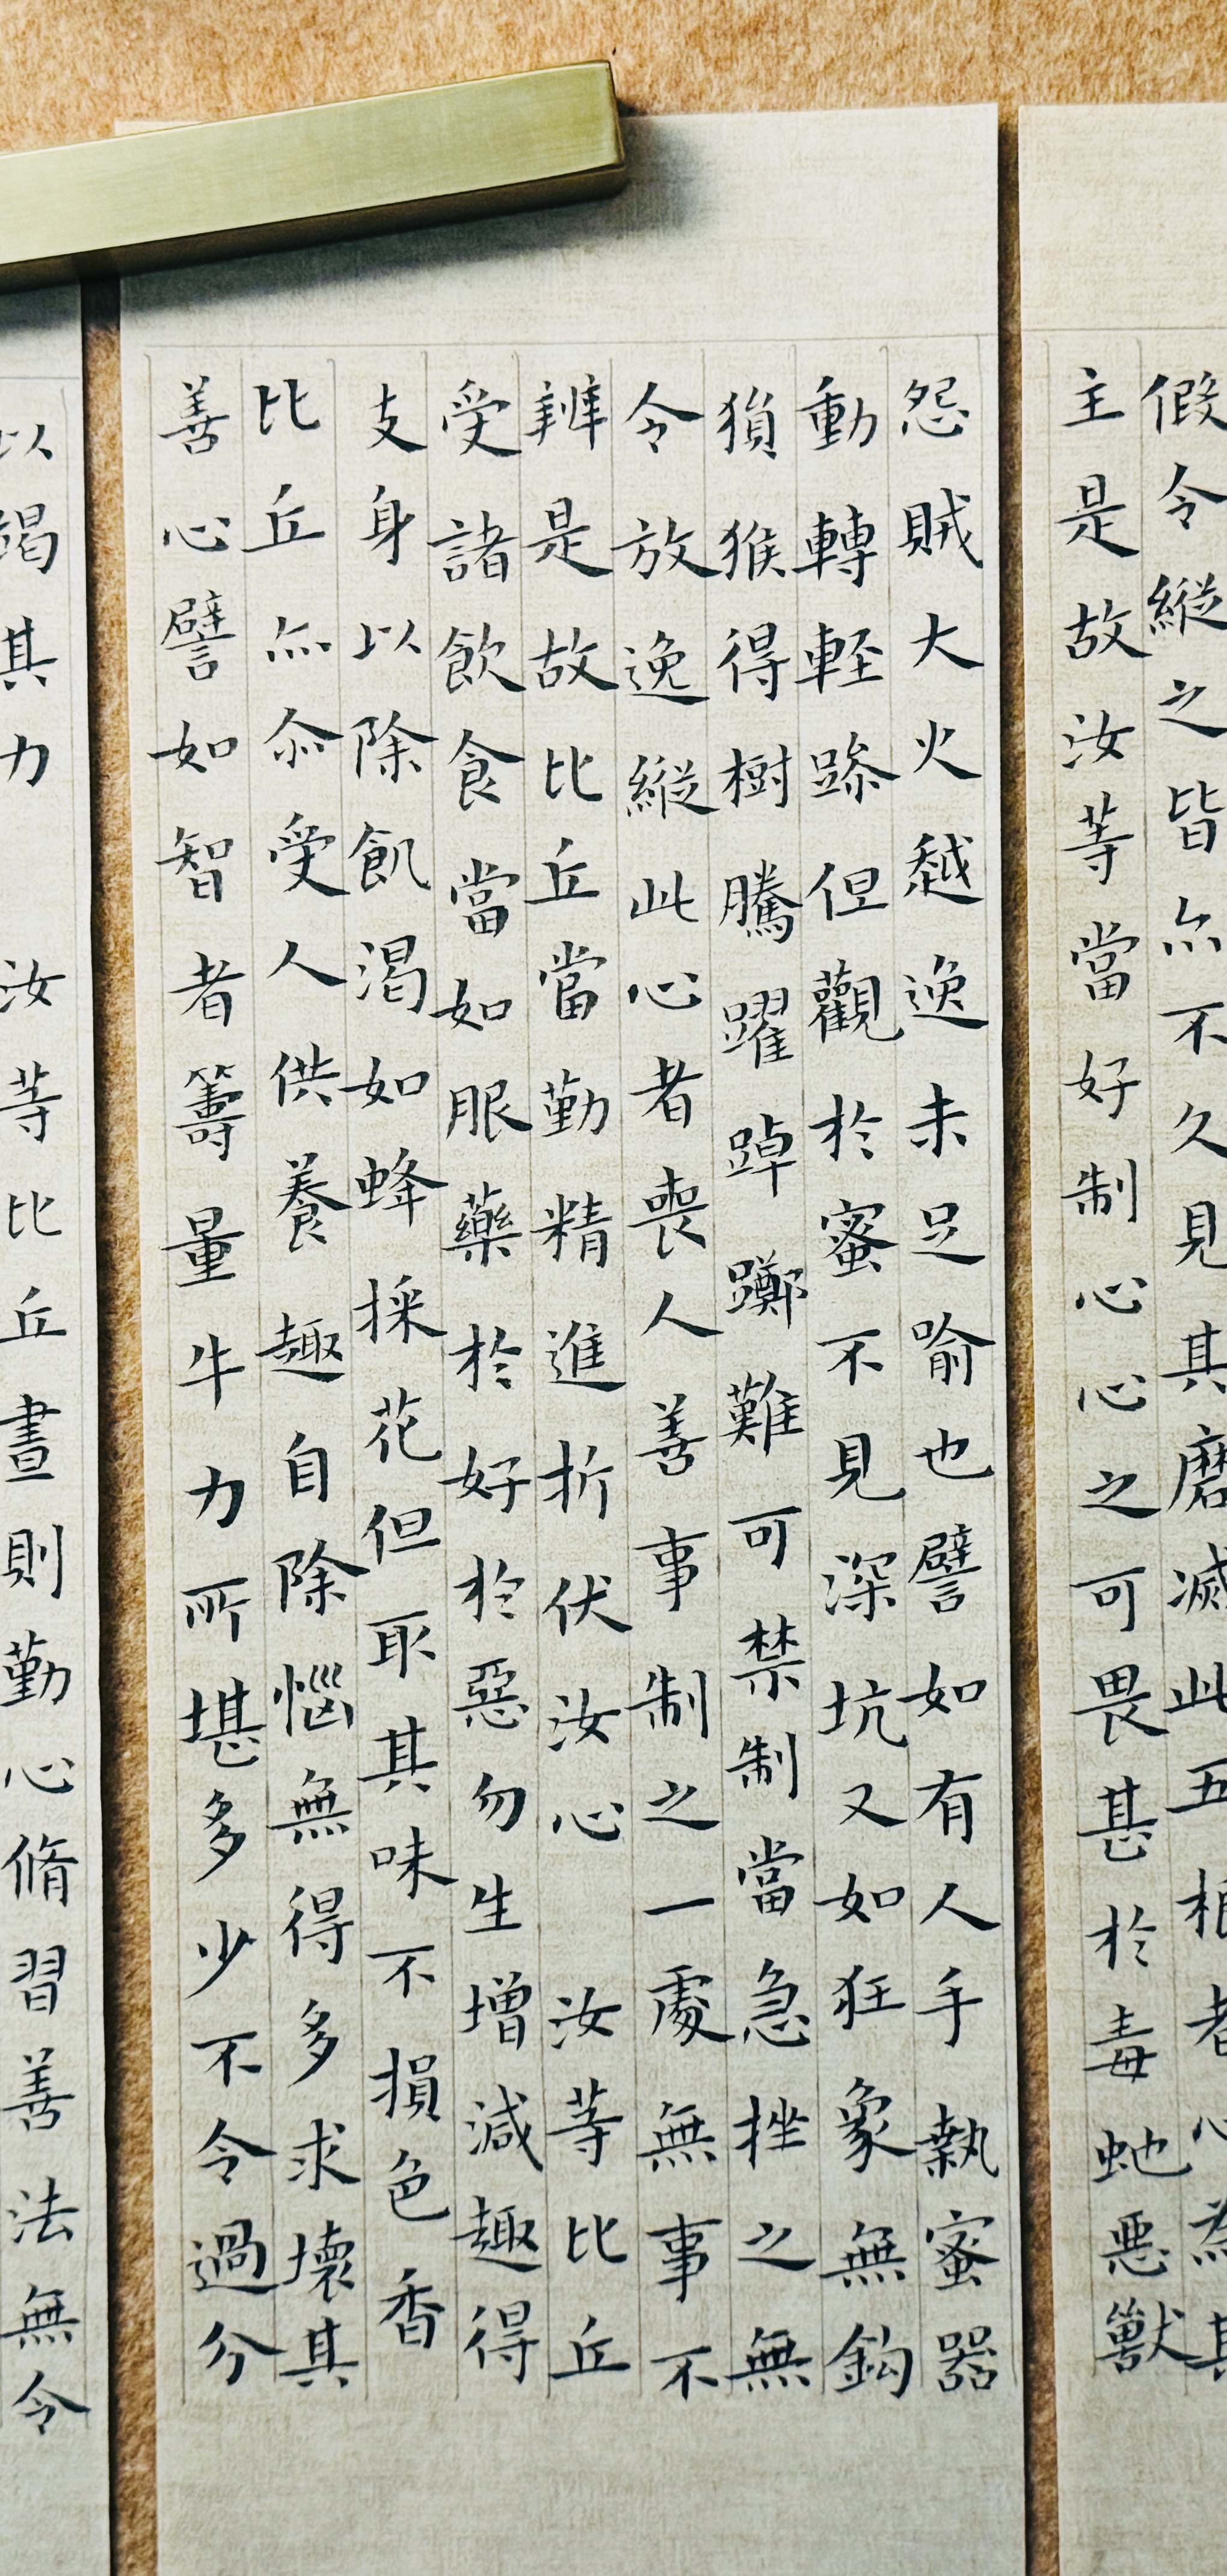 假令縱之皆亦不久見其磨滅此五根者心為其
主是故汝等當好制心心之可畏甚於毒虵惡獸
怨賊大火越逸未足喻也譬如有人手執蜜器
動轉輕躁但觀於蜜不見深坑又如狂象無鈎
猨猴得樹騰躍踔躑難可禁制當急挫之無
令放逸縱此心者喪人善事制之一處無事不
辨是故比丘當勤精進折伏汝心 汝等比丘
受諸飲食當如服藥於好於惡勿生增減趣得
支身以除飢渴如蜂採花但取其味不損色香
比丘亦尒受人供養趣自除惱無得多求壞其
善心譬如智者籌量牛力所堪多少不令過分
以竭其力 汝等比丘晝則勤心脩習善法無令